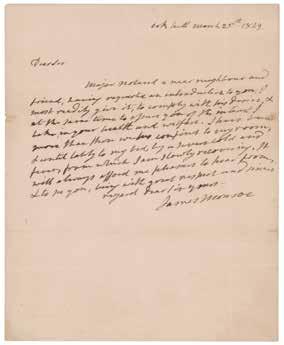 Oak hill March 25th 1829
Dear Sir
Major Noland a near neighbour and
friend, having requested an introduction to you, I
most readily give it, to comply with his desire, &
at the same time to assure you of the interest I
take in your health and welfare. I have been
more than three weeks confined to my room,
& until lately to my bed, by a severe cold and
fever, from which I am slowly recovering. It
will always afford me pleasure to hear from,
& to see you, being with great respect and sincere
regard dear sir yours
James Monroe